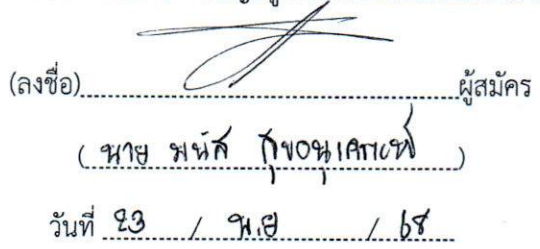 (ลงชื่อ) ผู้สมัคร
( นาย มนัส )
วันที่ 23 / พ.ย / 68